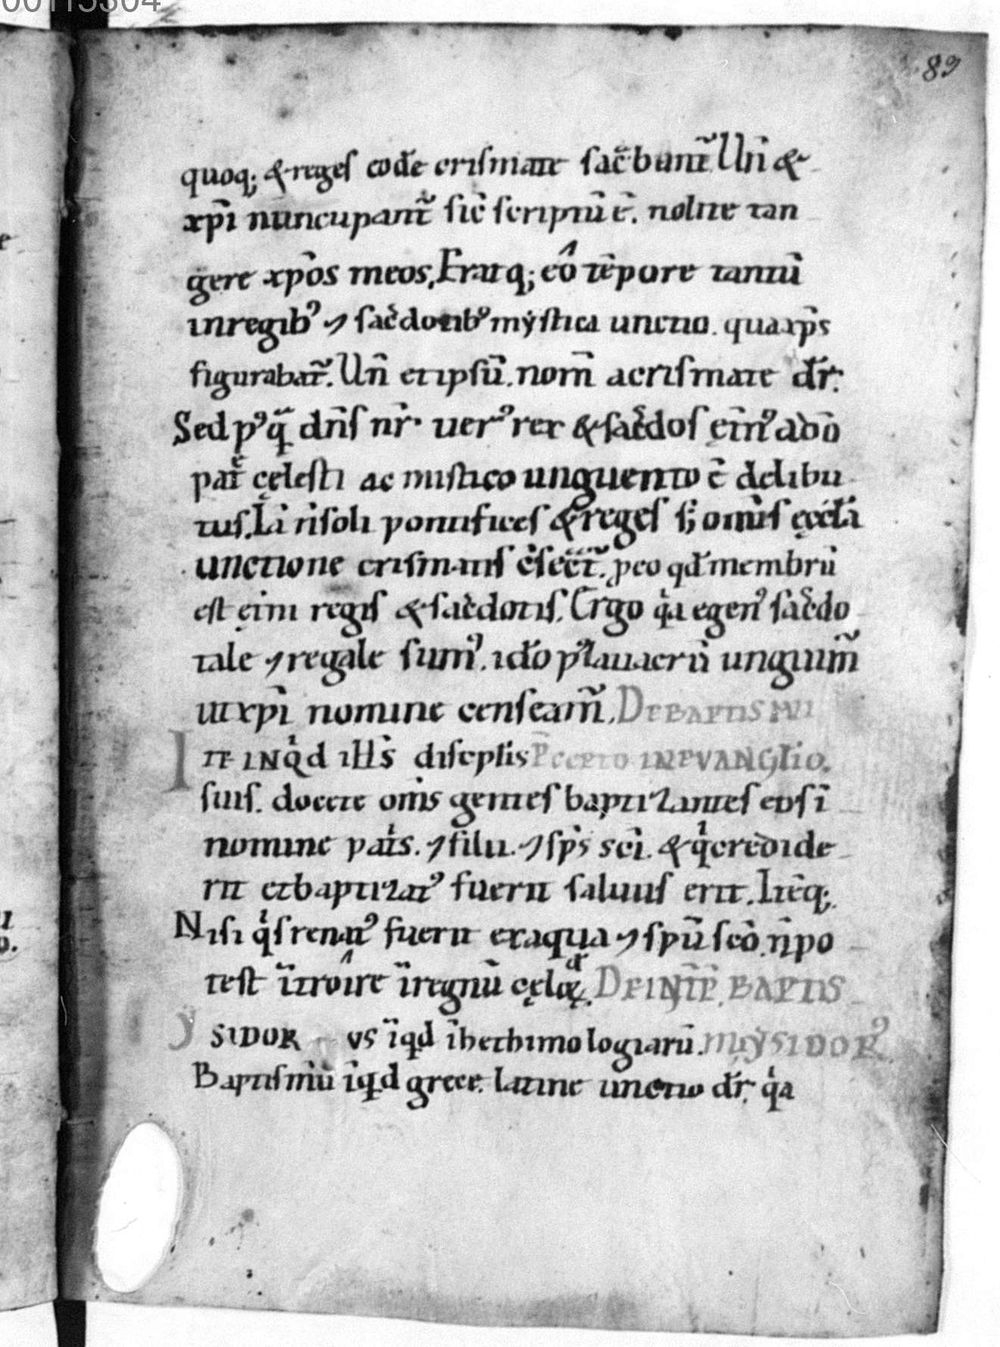 89
quoq; & reges eodē crismate sac̄bant̄. Un̄ &
xp̄i nuncupant̄ sic̄ scriptū ē. nolite tan
gere xp̄os meos. Eratq; eō tēpore tantū
in regib⁹ ⁊ sac̄dotib⁹ mẏstica unctio. qua xp̄s
figurabat̄. Un̄ et ipsū. nom̄ a crismate dr̄.
Sed p⁹q̄ dn̄s nr̄ uer⁹ rex & sac̄dos et̄n⁹ a dō
pat̄ cęlesti ac mistico unguento ē delibu
tus. Iā n̄ soli pontifices & reges s; om̄s ęccl̄a
unctione crismatis c̄sec̄t̄. p eo qd̄ membrū
est et̄ni regis & sac̄dotis. Ergo q̄a gen⁹ sac̄do
tale ⁊ regale sum⁹. idō p⁹ lauacrū unguim̄
ut xp̄i nomine censeam̄. DE BAPTISMI
ITE INQ̇d ih̄s discplis P̄cepto IN EVANGLio.
suis. docete om̄s gentes baptizantes eos ī
nomine pat̄s. ⁊ filii. ⁊ sp̄s sc̄i. & q̇ credide
rit et baptizat⁹ fuerit saluus erit. Itēq;
Nisi q̇s renat⁹ fuerit ex aqua ⁊ spū scō. n̄ po
test ītroire ī regnū cęloꝝ. DE INT̄P̄. BAPTIS
YSIDORVS īqd ī hethimologiarū. mi ẏSIDOR⁹
Baptismū īqd grece. latine unctio dr̄. q̄a